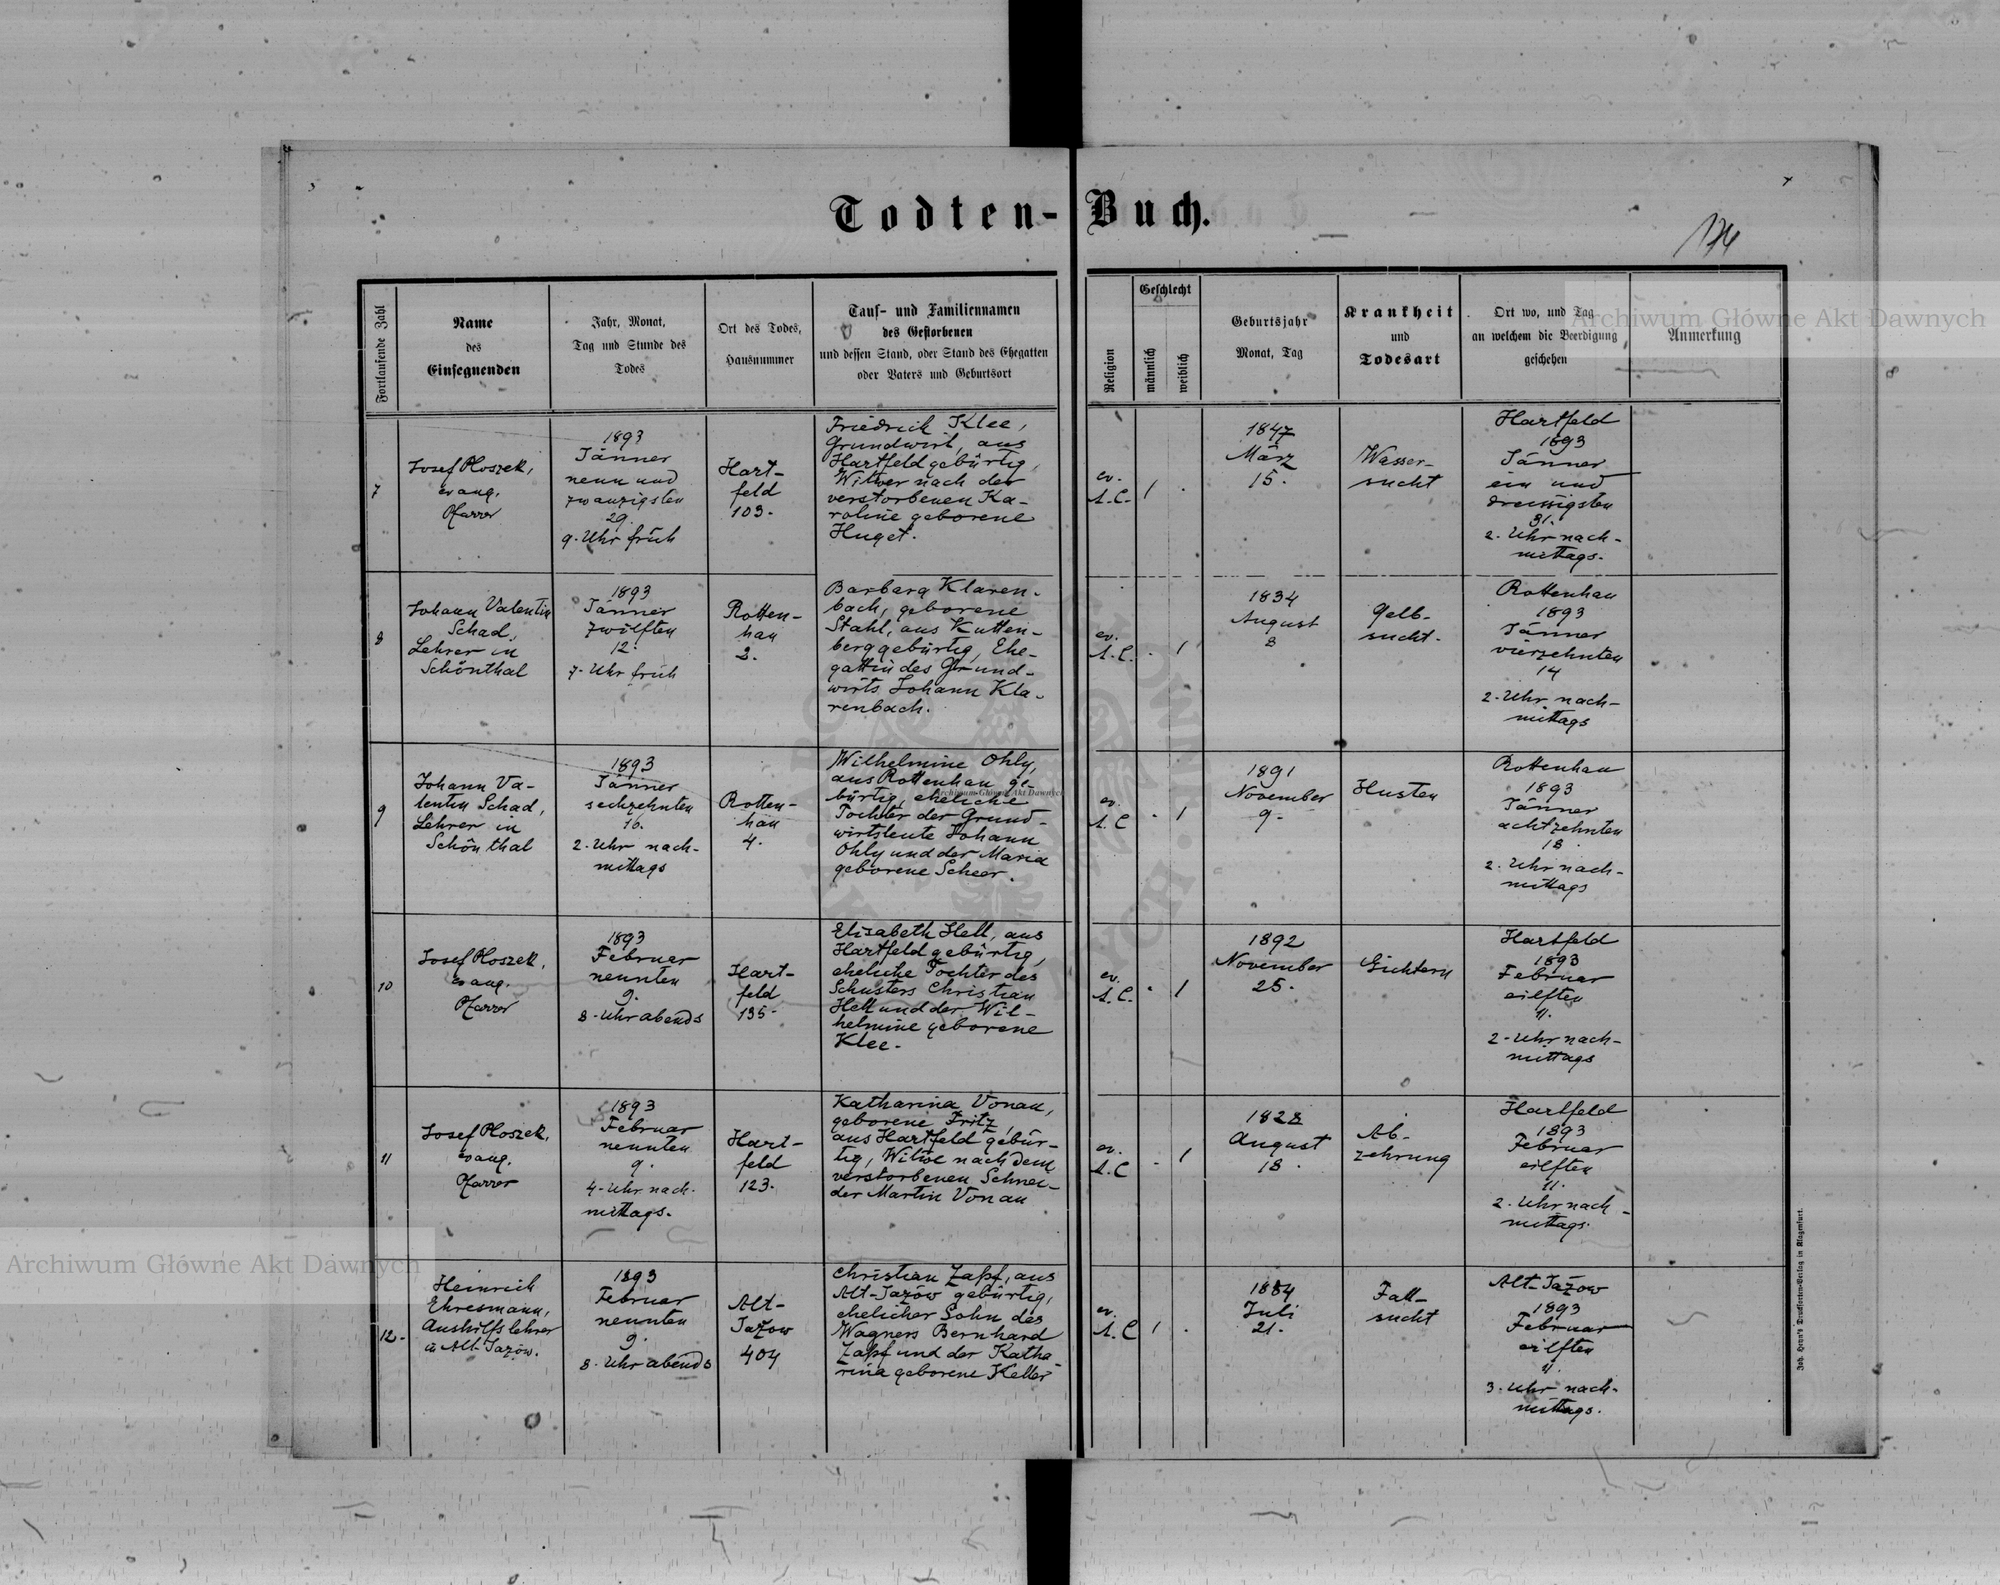 Todten-Buch.
174
Fortlaufende Zahl
Name
des
Einsegnenden
Jahr, Monat,
Tag und Stunde des
Todes
Ort des Todes,
Hausnummer
Tauf- und Familiennamen
des Gestorbenen
und dessen Stand, oder Stand des Ehegatten
oder Vaters und Geburtsort
Religion
Geschlecht
männlich
weiblich
Geburtsjahr
Monat, Tag
Krankheit
und
Todesart
Ort wo, und Tag
an welchem die Beerdigung
geschehen
Anmerkung
7
Josef Ploszek,
evang.
Pfarrer
1893
Jänner
neun und
zwanzigsten
29.
9. Uhr früh
Hart-
feld
103.
Friedrich Klee,
Grundwirt, aus
Hartfeld gebürtig,
Witwer nach der
verstorbenen Ka-
roline geborene
Huget.
ev.
A.C.
1
.
1847
März
15.
Wasser-
sucht
Hartfeld
1893
Jänner
ein und
dreissigsten
31.
2. Uhr nach-
mittags.
8
Johann Valentin
Schad,
Lehrer in
Schönthal
1893
Jänner
zwölften
12.
7. Uhr früh
Rotten-
han
2.
Barbara Klaren-
bach, geborene
Stahl, aus Kutten-
berg gebürtig, Ehe-
gattin des Grund-
wirts Johann Kla-
renbach.
ev.
A.C.
.
1
1834
August
8
Gelb-
sucht.
Rottenhan
1893
Jänner
vierzehnten
14
2. Uhr nach-
mittags
9
Johann Va-
lentin Schad,
Lehrer in
Schönthal
1893
Jänner
sechzehnten
16.
2. Uhr nach-
mittags
Rotten-
han
4.
Wilhelmine Ohly,
aus Rottenhan ge-
bürtig, eheliche
Tochter der Grund-
wirtsleute Johann
Ohly und der Maria
geborene Scheer.
ev.
A.C
.
1
1891
November
9.
Husten
Rottenhan
1893
Jänner
achtzehnten
18.
2. Uhr nach-
mittags
10
Josef Ploszek,
evang.
Pfarrer
1893
Februar
neunten
9.
8. Uhr abends
Hart-
feld
135.
Elisabeth Hell, aus
Hartfeld gebürtig,
eheliche Tochter des
Schusters Christian
Hell und der Wil-
helmine geborene
Klee.
ev.
A.C.
.
1
1892
November
25.
Gichtern
Hartfeld
1893
Februar
eilften
11.
2. Uhr nach-
mittags
11
Josef Ploszek,
evang.
Pfarrer
1893
Februar
neunten
9.
4. Uhr nach-
mittags.
Hart-
feld
123.
Katharina Vonau,
geborene Fritz,
aus Hartfeld gebür-
tig, Witwe nach dem
verstorbenen Schnei-
der Martin Vonau
ev.
A.C
.
1
1828
August
18.
Ab-
zehrung
Hartfeld
1893
Februar
eilften
11.
2. Uhr nach-
mittags.
12.
Heinrich
Ehresmann,
Aushilfslehrer
in Alt-Jazów.
1893
Februar
neunten
9.
8. Uhr abends
Alt-
Jazow
404
Christian Zapf, aus
Alt-Jazów gebürtig,
ehelicher Sohn des
Wagners Bernhard
Zapf und der Katha-
rina geborene Keller
ev.
A.C
1
.
1884
Juli
21.
Fall-
sucht
Alt-Jazow
1893
Februar
eilften
11
3. Uhr nach-
mittags.
Joh. Heyn's Drucksorten-Verlag in Klagenfurt.
Archiwum Główne Akt Dawnych
Archiwum Główne Akt Dawnych
Archiwum Główne Akt Dawnych